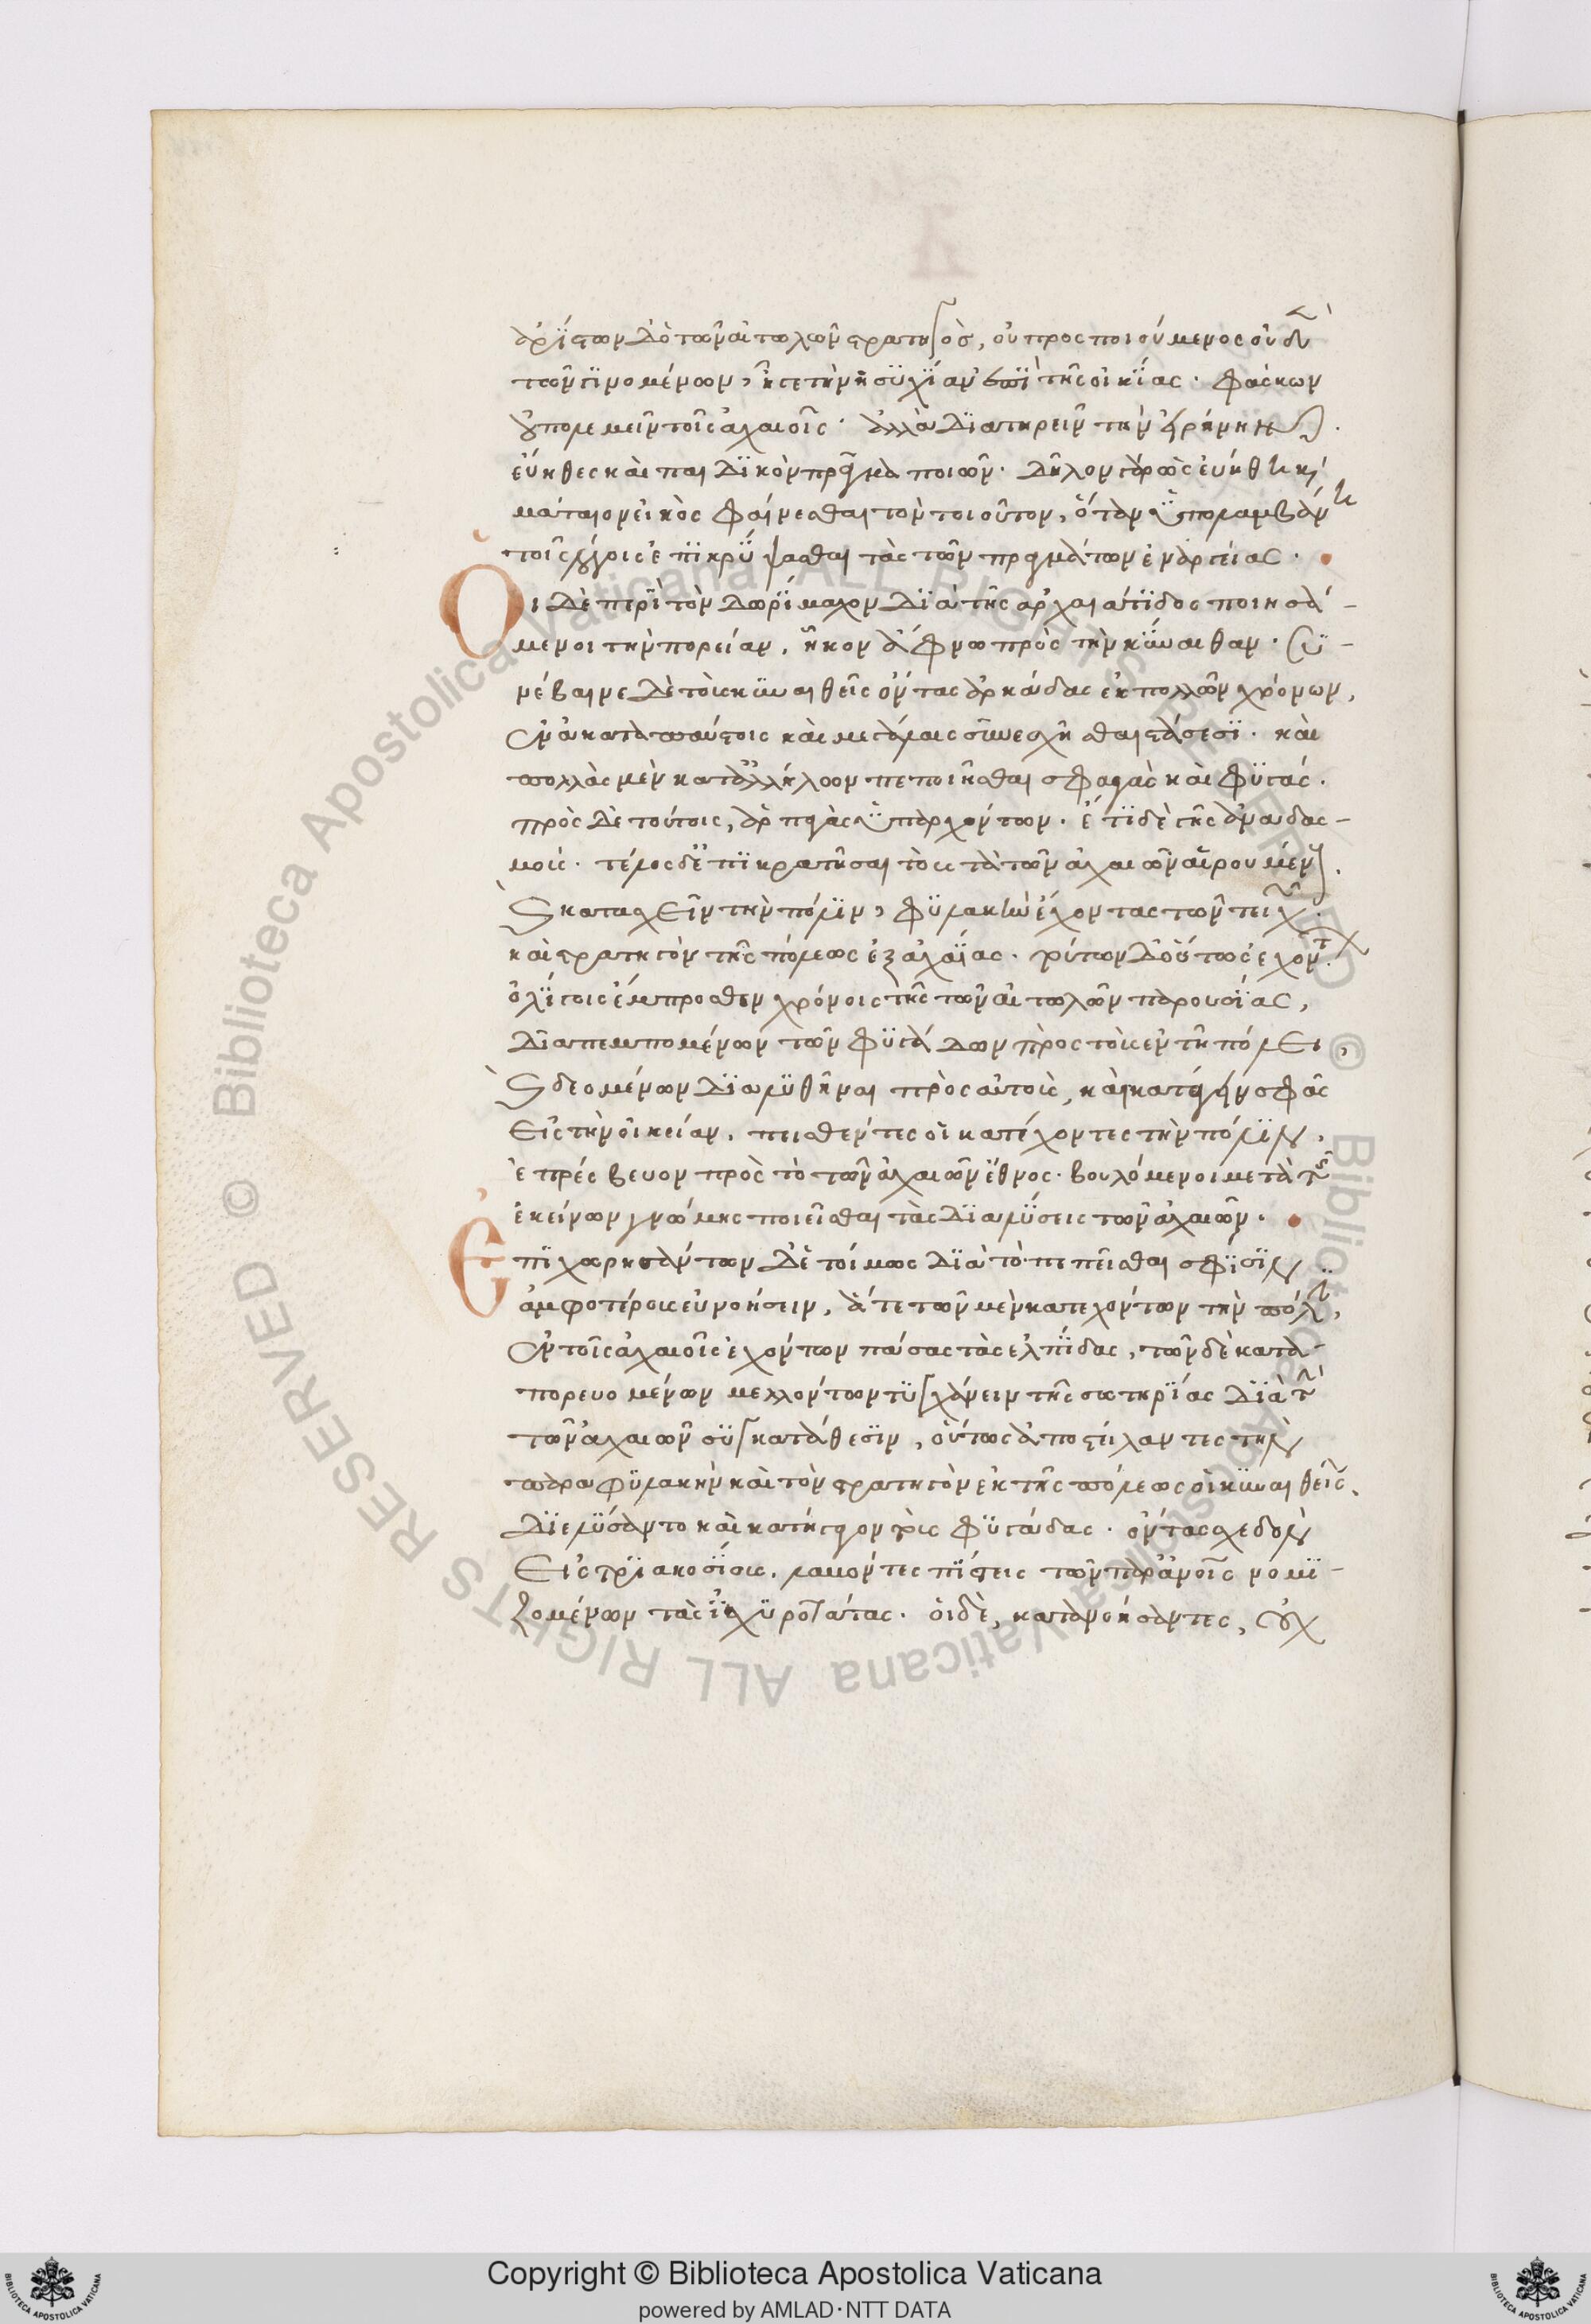 ἀρίστων δὁ τῶν αἰτωλῶν στρατηγὸσ, οὐ προσποιούμενος οὐδὲν
τῶν γινομένων, ἦγε τὴν ἡσυχίαν ἐπὶ τῆς οἰκίας. φάσκων
οὐ πολεμεῖν τοῖς ἀχαιοῖς. ἀλλὰ διατηρεῖν τὴν εἰρήνην.
εὔηθες καὶ παιδικὸν πρᾶγμα ποιῶν. δῆλον γὰρ ὡς εὐήθη καὶ
μάταιον εἰκὸς φαίνεσθαι τὸν τοιοῦτον, ὅταν ὑπολαμβάνη
τοῖς λόγοις ἐπικρύψασθαι τὰς τῶν πραγμάτων ἐναργείας.
Οἱ δὲ περὶ τὸν δωρίμαχον διὰ τῆς ἀρχαιάτιδος ποιησά-
μενοι τὴν πορείαν, ἧκον ἄφνω πρὸς τὴν κύναιθαν. συ-
νέβαινε δὲ τοὺς κυναιθεῖς ὄντας ἀρκάδας ἐκ πολλῶν χρόνων,
ἐν ἀκαταπαύστοις καὶ μεγάλαις συνεσχῆσθαι στάσεσι. καὶ
πολλὰς μὲν κατἀλλήλων πεποιῆσθαι σφαγὰς καὶ φυγάς.
πρὸς δὲ τούτοις, ἁρπαγὰς ὑπαρχόντων. ἔτι δὲ γῆς ἀναδασ-
μούς. τέλος δἐπικρατῆσαι τοὺς τὰ τῶν ἀχαιῶν αἱρουμένους.
καὶ κατασχεῖν τὴν πόλιν, φυλακὴν ἔχοντας τῶν τειχῶν.
καὶ στρατηγὸν τῆς πόλεως ἐξ ἀχαΐας. τούτων δοὕτως ἐχόντων.
ὀλίγοις ἔμπροσθεν χρόνοις τῆς τῶν αἰτωλῶν παρουσίας,
διαπεμπομένων τῶν φυγάδων πρὸς τοὺς ἐν τῆ πόλει,
καὶ δεομένων διαλυθῆναι πρὸς αὐτοὺς, καὶ κατάγειν σφᾶς
εἰς τὴν οἰκείαν. πεισθέντες οἱ κατέχοντες τὴν πόλιν,
ἐπρέσβευον πρὸς τὸ τῶν ἀχαιῶν ἔθνος. βουλόμενοι μετὰ τῆς
ἐκείνων γνώμης ποιεῖσθαι τὰς διαλύσεις τῶν ἀχαιῶν.
Ἐπιχωρησάντων δἑτοίμως διὰ τὸ πεπεῖσθαι σφίσιν
ἀμφοτέρους εὐνοήσειν, ἅτε τῶν μὲν κατεχόντων τὴν πόλιν,
ἐν τοῖς ἀχαιοῖς ἐχόντων πάσας τὰς ἐλπίδας, τῶν δὲ κατα-
πορευομένων μελλόντων τυγχάνειν τῆς σωτηρίας διὰ τὴν
τῶν ἀχαιῶν συγκατάθεσιν, οὕτως ἀποστείλαντες τὴν
παραφυλακὴν καὶ τὸν στρατηγὸν ἐκ τῆς πόλεως οἱ κυναιθεῖς.
διελύσαντο καὶ κατήγαγον τοὺς φυγάδας. ὄντας σχεδὸν
εἰς τριακοσίους. λαβόντες πίστεις τῶν παρἀνοις νομι-
ζομένων τὰς ἰσχυροτάτας. οἱ δὲ, κατανοήσαντες, οὐχ
Copyright © Biblioteca Apostolica Vaticana
powered by AMLAD·NTT DATA